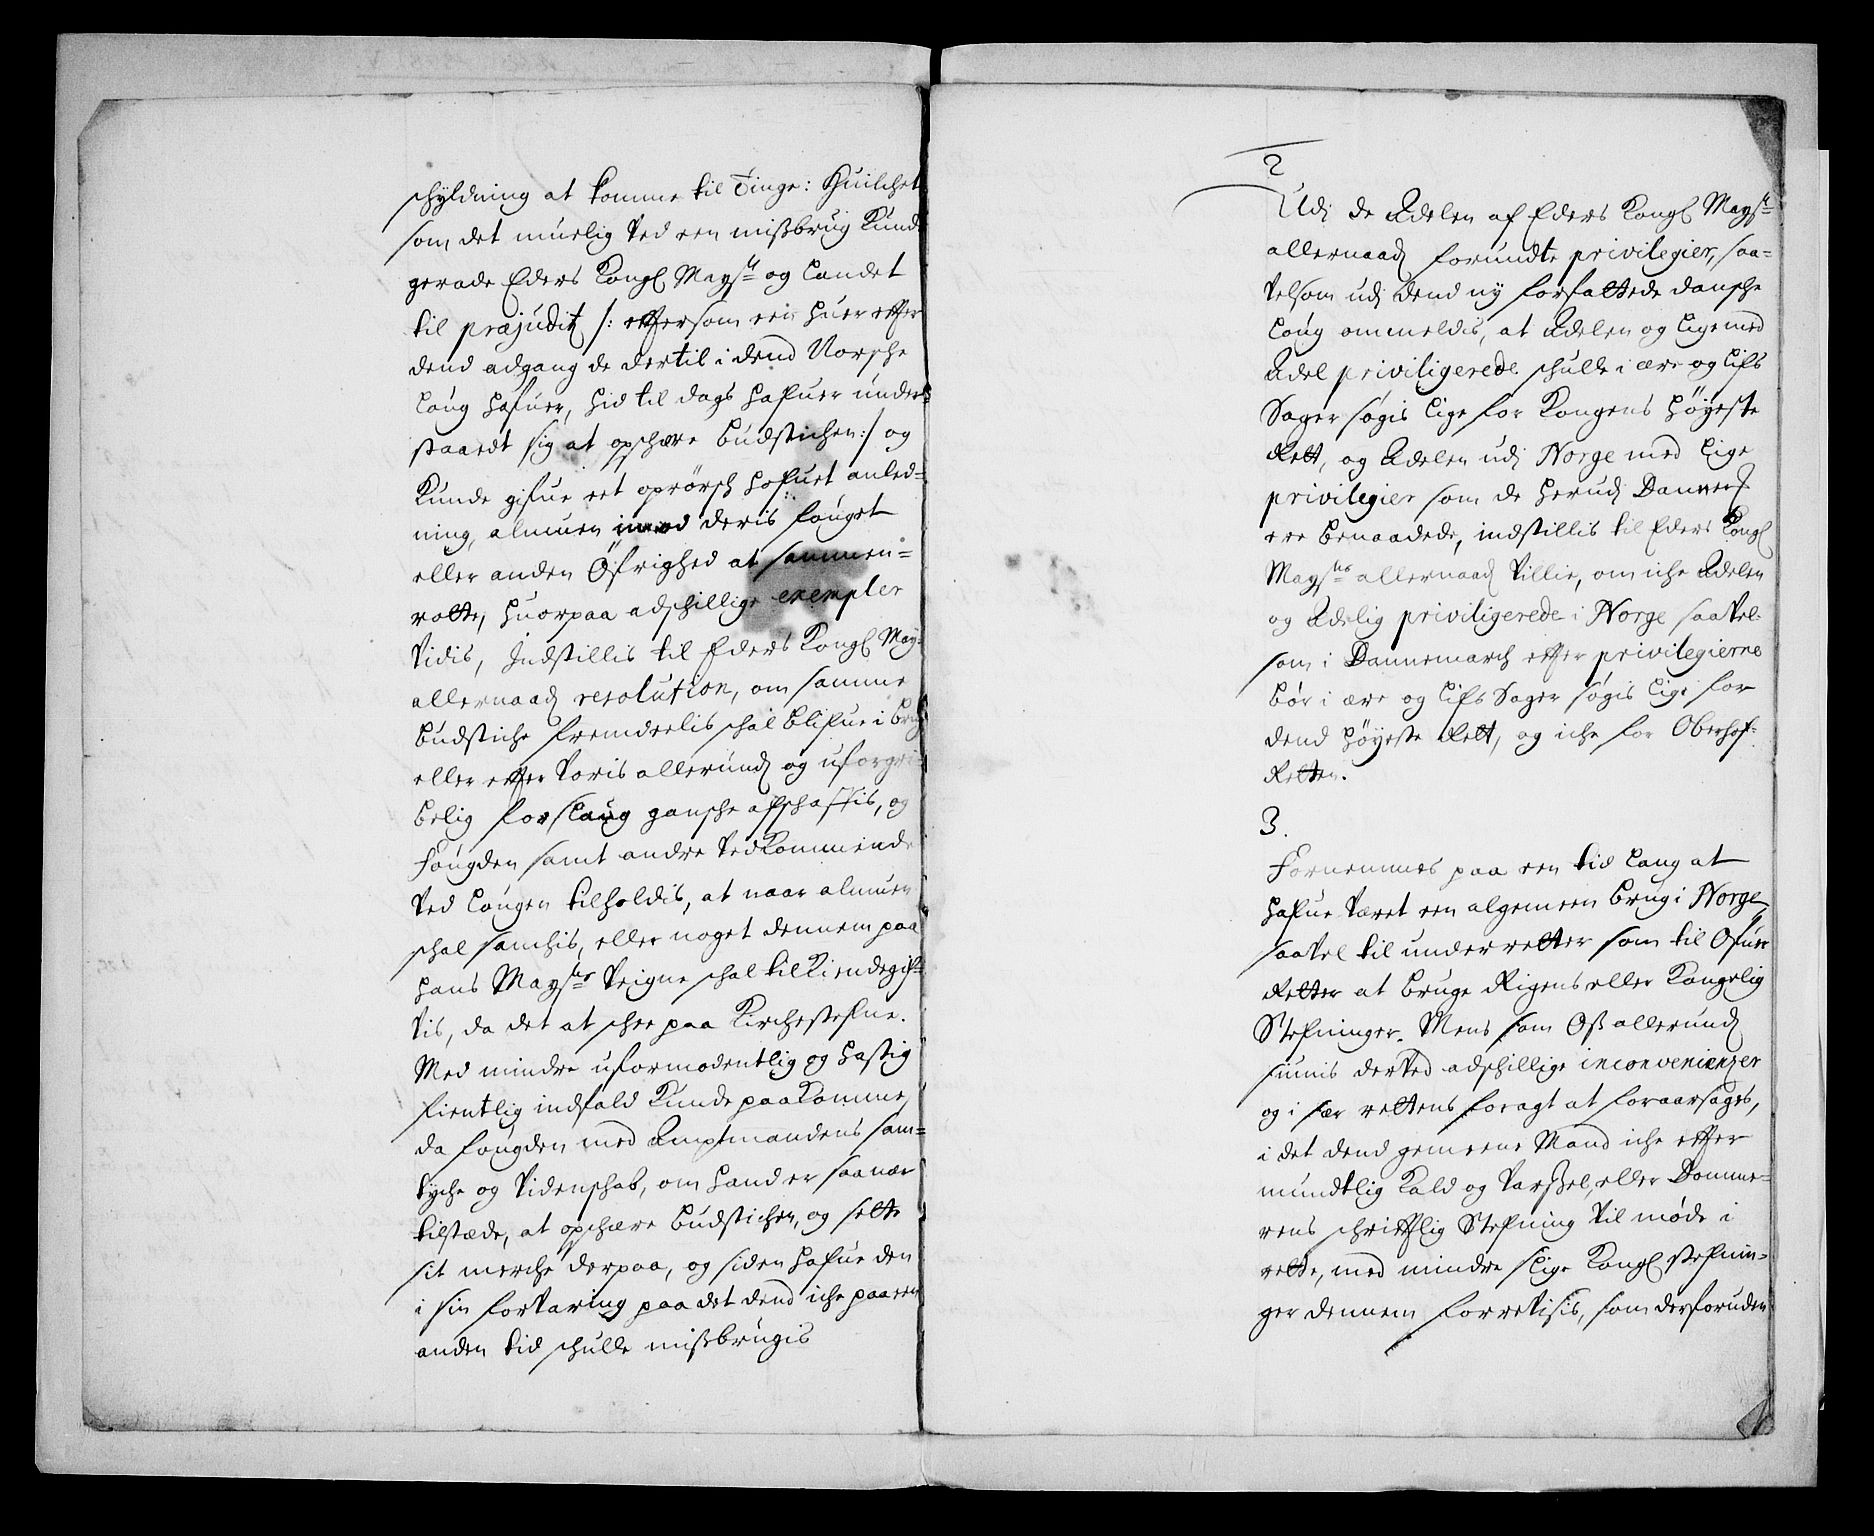 schyldning at komme til Tinge: Huilchet
som det muelig ved een missbrug kunde
gerade Eders Kongl Mayst og Landet
til præjuditz /: effersom een huer effer
dend adgang de dertil i dend Norsche
Loug hafuer, hid til dags hafuer under-
staaedt sig at opschære budstichen :/ og
kunde gifue eet oprørsch hofuet anled-
ning, almuen imod deris fouget
eller anden Øfrighed at sammen-
rotte, huorpaa adschillige exempler
vidis, Indstillis til Eders Kongl May.
allernaad resolution, om samme
budstiche fremdeelis schal blifue i brug
eller effter voris allerund og uforgri-
belig forslaug gansche afschaffis, og
fougden samt andre vedkommende
ved Lougen tilholdis, at naar almuen
schal samlis, eller noget dennem paa
hans Mayts veigne schal tilkiendegif-
vis, da det at schee paa Kirchestefne.
Med mindre uformodentlig og hastig
fientlig indfald kunde paakomme,
da fougden med Amptmandens sam-
tyche og videnschab, om hand er saa nær
tilstæde, at opschære budstichen, og sette
sit merche derpaa, og siden hafue den
i sin forvaring paa det dend iche paa een
anden tid schulle missbrugis
2
Udj de Adelen af Eders Kongl Mayst
allernaad forundte privilegier, saa-
velsom udj dend ny forfattede dansche
Loug ommeldis, at Adelen og lige med
Adel priviligerede schulle i ære og Lifs
Sager søgis lige for Kongens høyeste
Rett, og Adelen udj Norge med lige
privilegier som de herudj Danmr
ere benaadede, indstillis til Eders Kongl
Maysts allernaad villie, om iche Adelen
og Adelig priviligerede i Norge saavel-
som i Dannemarch effter privilegierne
bør i ære og Lifs Sager søgis lige for
dend høyeste Rett, og iche for Oberhof-
Retten.
3.
Fornemmes paa een tid lang at
hafue været een algemeen brug i Norge,
saavel til underretter som til Ofuer
Retter at bruge Rigens eller Kongelig
Stefninger. Mens som Oss allerund
siunis derved adschillige inconvenienzer
og i sær rettens foragt at foraarsages,
i det dend gemeene Mand iche effter
mundtlig kald og varssel, eller Domme-
rens schrifftlig Stefning vil møde i
rette, med mindre slige Kongl stefnin-
ger dennem forrevisis, som derforuden